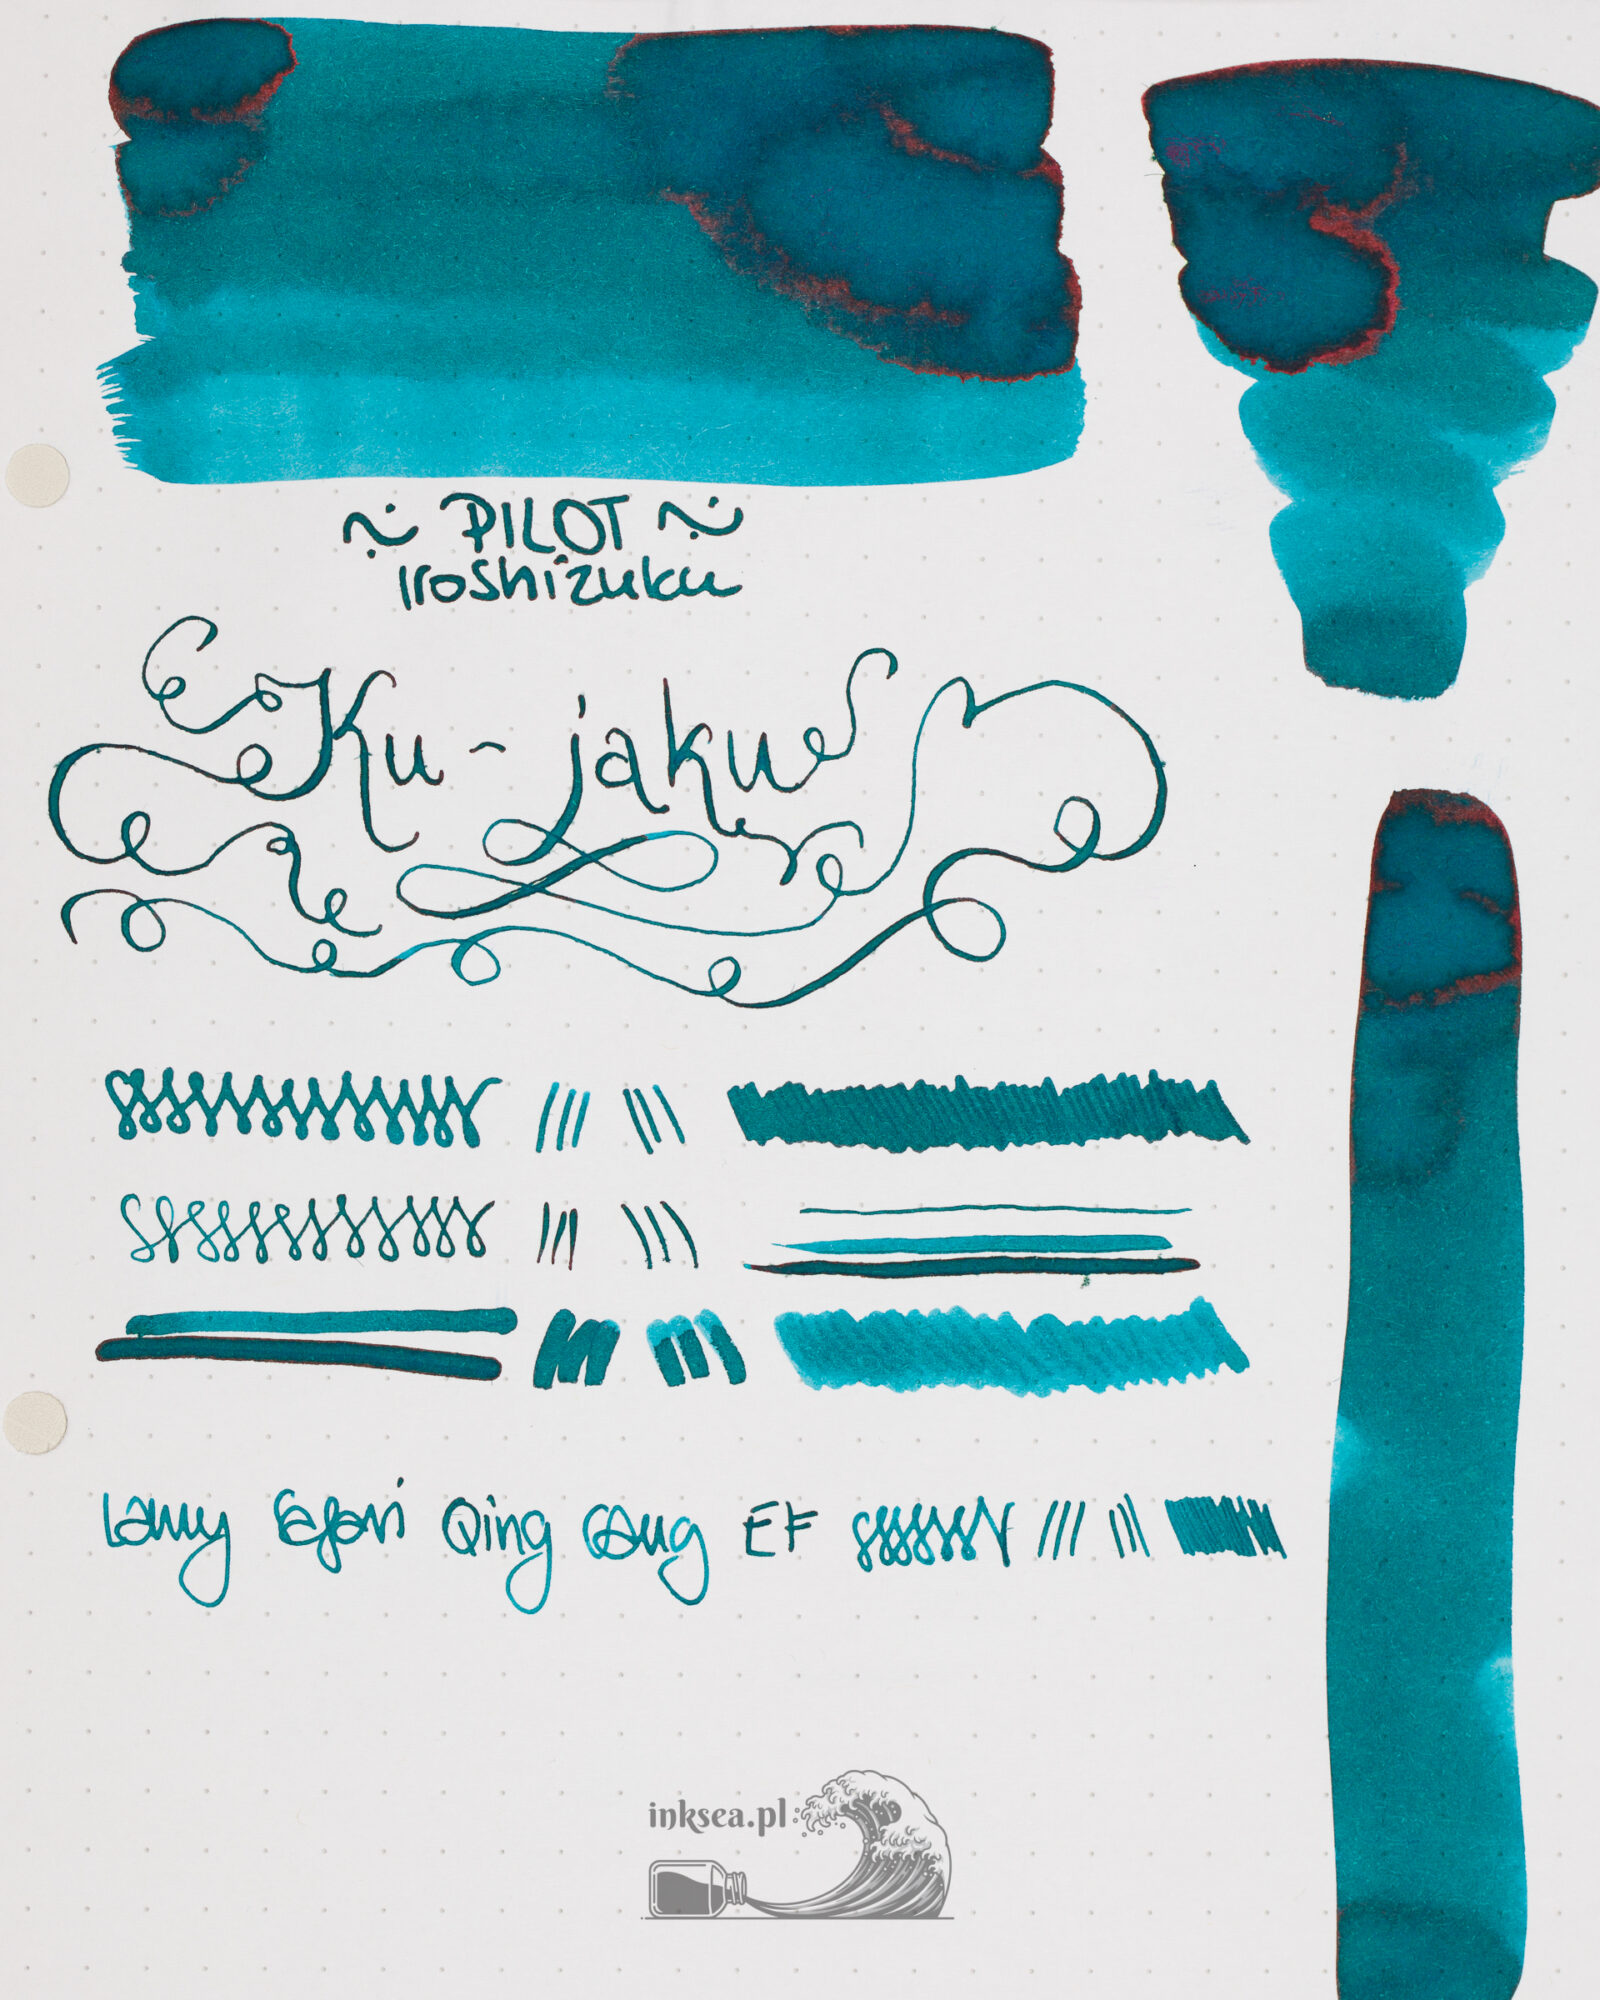 ~ PILOT ~
Iroshizuku
Ku-jaku
Lamy Safari Qing Gang EF
inksea.pl